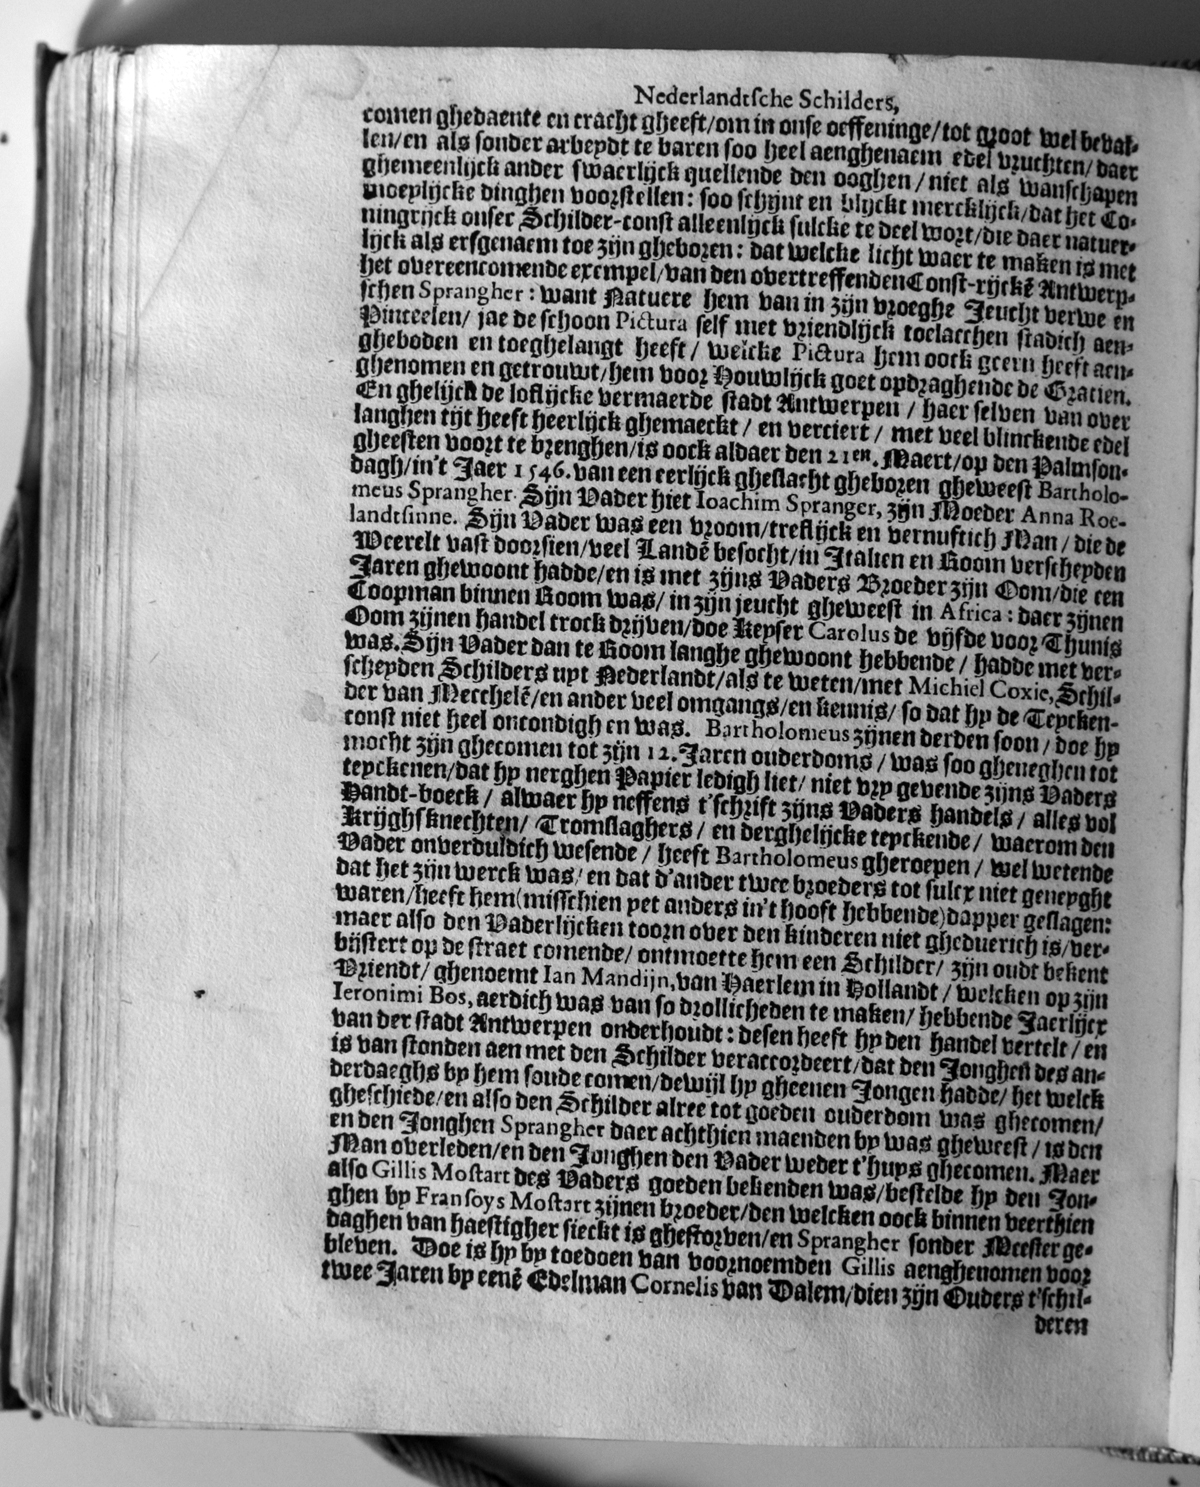 Nederlandtsche Schilders,
comen ghedaente en cracht gheeft/om in onse oeffeninge/tot groot wel beval-
len/en als sonder arbeydt te baren soo heel aenghenaem edel vruchten/daer
ghemeenlijck ander swaerlijck quellende den ooghen/niet als wanschapen
moeylijcke dinghen voorstellen: soo schijnt en blijckt mercklijck/dat het Co-
ningrijck onser Schilder-const alleenlijck sulcke te deel wort/die daer natuer-
lijck als erfgenaem toe zijn gheboren: dat welcke licht waer te maken is met
het overeencomende exempel/van den overtreffenden Const-rijckē Antwerp-
schen Sprangher: want Natuere hem van in zijn vroeghe Jeucht verwe en
Pinceelen/ jae de schoon Pictura self met vriendlijck toelacchen stadich aen-
gheboden en toeghelangt heeft/ welcke Pictura hem oock geern heeft aen-
ghenomen en getrouwt/hem voor Houwlijck goet opdraghende de Gratien.
En ghelijck de loflijcke vermaerde stadt Antwerpen / haer selven van over
langhen tijt heeft heerlijck ghemaeckt / en verciert / met veel blinckende edel
gheesten voort te brenghen/is oock aldaer den 21en. Maert/op den Palmson-
dagh/in't Jaer 1546. van een eerlijck gheslacht gheboren gheweest Bartholo-
meus Sprangher. Sijn Vader hiet Ioachim Spranger, zijn Moeder Anna Roe-
landtsinne. Sijn Vader was een vroom/treflijck en vernuftich Man / die de
Weerelt vast doorsien/veel Landē besocht/in Italien en Room verscheyden
Jaren ghewoont hadde/en is met zijns Vaders Broeder zijn Oom/die een
Coopman binnen Room was/ in zijn jeucht gheweest in Africa: daer zijnen
Oom zijnen handel trock drijven/doe Keyser Carolus de vijfde voor Thunis
was. Sijn Vader dan te Room langhe ghewoont hebbende / hadde met ver-
scheyden Schilders uyt Nederlandt/als te weten/met Michiel Coxie, Schil-
der van Mecchelē/en ander veel omgangs/en kennis/ so dat hy de Teycken-
const niet heel oncondigh en was. Bartholomeus zijnen derden soon / doe hy
mocht zijn ghecomen tot zijn 12. Jaren ouderdoms / was soo gheneghen tot
teyckenen/dat hy nerghen Papier ledigh liet/ niet vry gevende zijns Vaders
Handt-boeck / alwaer hy neffens t'schrift zijns Vaders handels / alles vol
Krijghsknechten/ Tromslaghers / en derghelijcke teyckende / waerom den
Vader onverduldich wesende / heeft Bartholomeus gheroepen / wel wetende
dat het zijn werck was/ en dat d'ander twee broeders tot sulcx niet geneyght
waren/heeft hem(misschien yet anders in't hooft hebbende)dapper geslagen:
maer also den Vaderlijcken toorn over den kinderen niet gheduerich is/ver-
bijstert op de straet comende/ ontmoette hem een Schilder/ zijn oudt bekent
Vriendt/ ghenoemt Ian Mandijn, van Haerlem in Hollandt / welcken op zijn
Ieronimi Bos, aerdich was van so drollicheden te maken/ hebbende Jaerlijcx
van der stadt Antwerpen onderhoudt: desen heeft hy den handel vertelt / en
is van stonden aen met den Schilder veraccordeert/dat den Jonghen des an-
derdaeghs by hem soude comen/dewijl hy gheenen Jongen hadde/ het welck
gheschiede/en also den Schilder alree tot goeden ouderdom was ghecomen/
en den Jonghen Sprangher daer achthien maenden by was gheweest / is den
Man overleden/en den Jonghen den Vader weder t'huys ghecomen. Maer
also Gillis Mostart des Vaders goeden bekenden was/bestelde hy den Jon-
ghen by Fransoys Mostart zijnen broeder/den welcken oock binnen veerthien
daghen van haestigher sieckt is ghestorven/en Sprangher sonder Meester ge-
bleven. Doe is hy by toedoen van voornoemden Gillis aenghenomen voor
twee Jaren by eenē Edelman Cornelis van Dalem/dien zijn Ouders t'schil-
deren